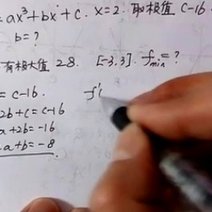 = ax³+bx+c. x=2. 取极值 c-16
b=?
有极大值 28. [-3,3]. fmin=?
= c-16.
2b+c=c-16
a+2b=-16 f'(
a+b=-8.